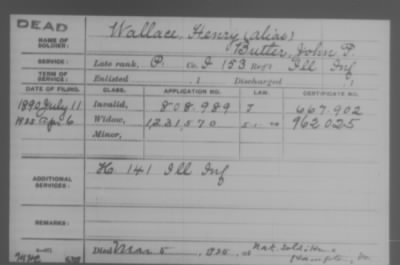 DEAD
NAME OF SOLDIER: Wallace, Henry (alias)
Butler, John P.
SERVICE: Late rank, P. Co. I 153 Reg't Ill Inf
TERM OF SERVICE: Enlisted , 1 Discharged , 1
DATE OF FILING. CLASS. APPLICATION NO. LAW. CERTIFICATE NO.
1890 July 11 Invalid, 808.989 J 667.902
1925 Apr 6 Widow, 1,231,570 962.025
Minor,
ADDITIONAL SERVICES: K 141 Ill Inf
REMARKS:
Died Mar 5, 1925, at Nat. Sold. Home
Hampton, Va